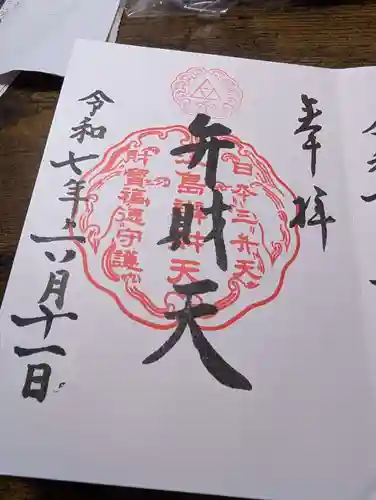 奉拝
日本三弁天
江島辨財天
財寶福徳守護
弁財天
令和七年六月十一日